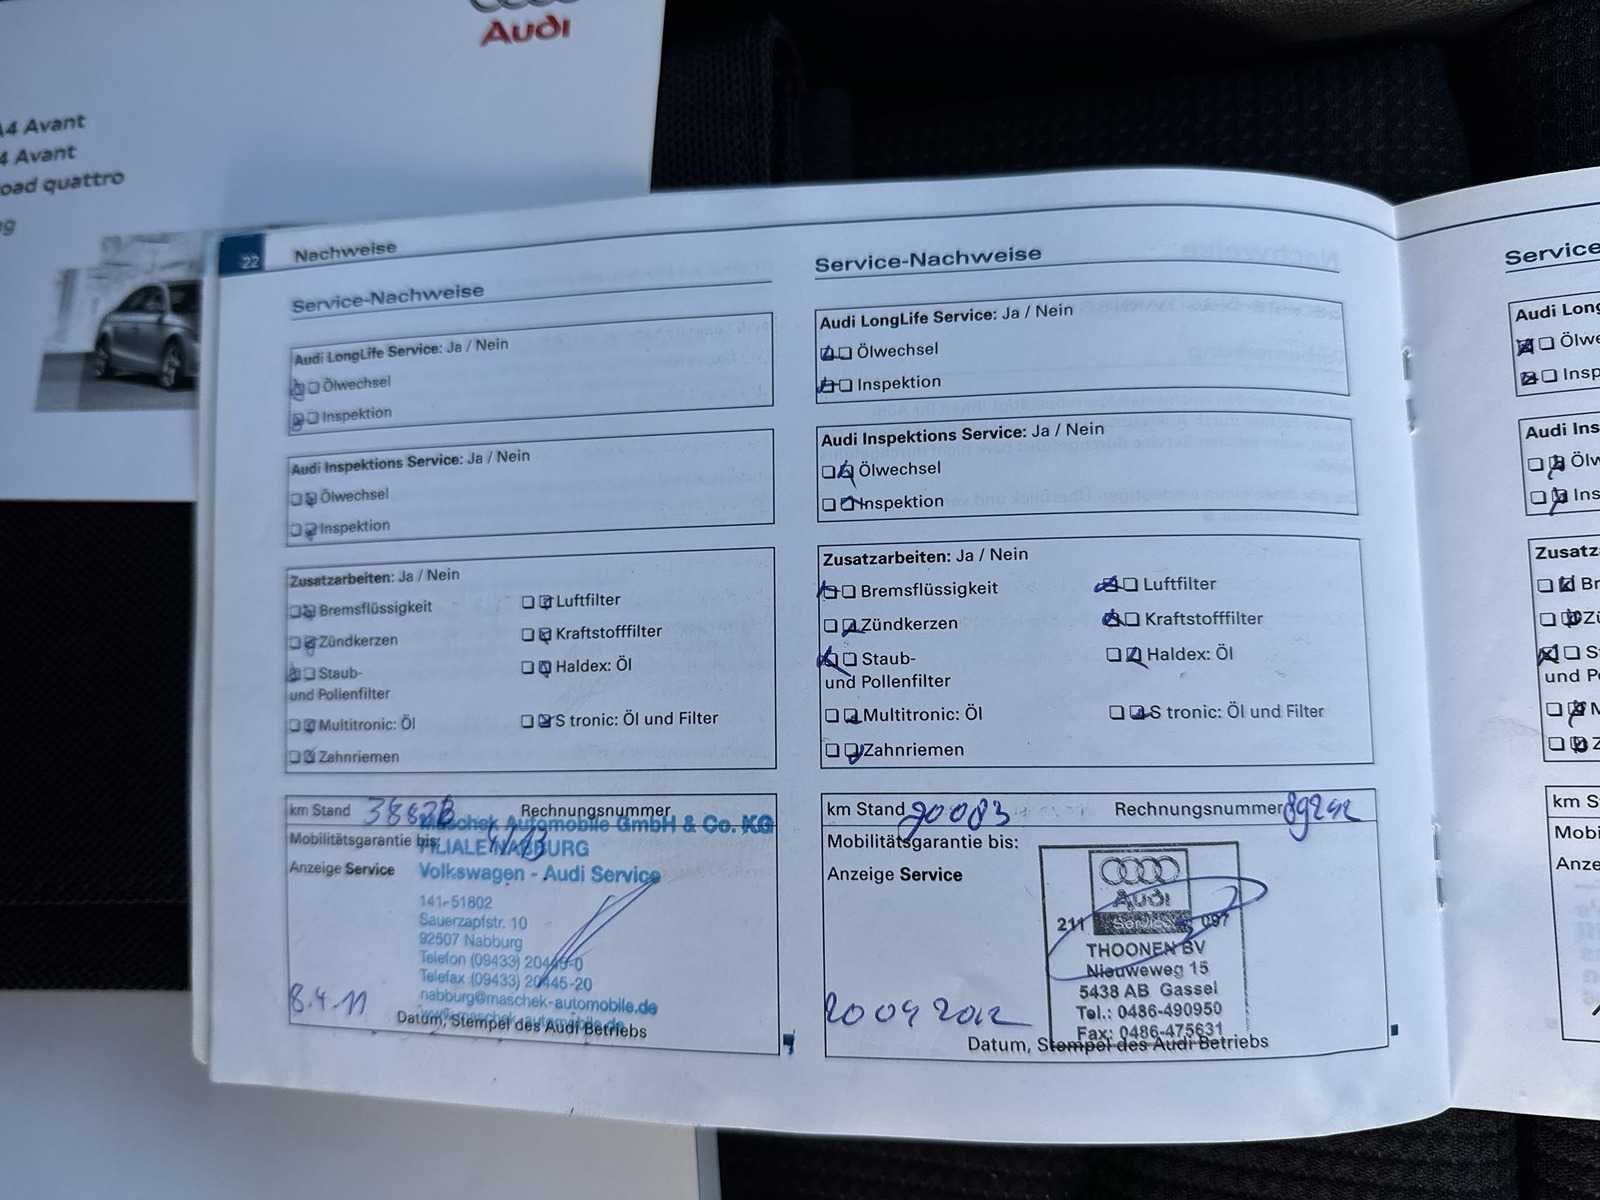 Audi
A4 Avant
4 Avant
oad quattro
22
Nachweise
Service-Nachweise
Audi LongLife Service: Ja / Nein
Ölwechsel
Inspektion
Audi Inspektions Service: Ja / Nein
Ölwechsel
Inspektion
Zusatzarbeiten: Ja / Nein
Bremsflüssigkeit
Luftfilter
Zündkerzen
Kraftstofffilter
Staub-
und Pollenfilter
Haldex: Öl
Multitronic: Öl
S tronic: Öl und Filter
Zahnriemen
km Stand
Rechnungsnummer
Maschek Automobile GmbH & Co. KG
Mobilitätsgarantie bis:
FILIALE NABBURG
Anzeige Service
Volkswagen - Audi Service
141-51802
Sauerzapfstr. 10
92507 Nabburg
Telefon (09433) 20445-0
Telefax (09433) 20445-20
nabburg@maschek-automobile.de
www.maschek-automobile.de
8.4.11
Datum, Stempel des Audi Betriebs
Service-Nachweise
Audi LongLife Service: Ja / Nein
Ölwechsel
Inspektion
Audi Inspektions Service: Ja / Nein
Ölwechsel
Inspektion
Zusatzarbeiten: Ja / Nein
Bremsflüssigkeit
Luftfilter
Zündkerzen
Kraftstofffilter
Staub-
und Pollenfilter
Haldex: Öl
Multitronic: Öl
S tronic: Öl und Filter
Zahnriemen
km Stand
Rechnungsnummer
Mobilitätsgarantie bis:
Anzeige Service
Audi
211 Service 097
THOONEN BV
Nieuweweg 15
5438 AB Gassel
Tel.: 0486-490950
Fax: 0486-475631
20 04 2012
Datum, Stempel des Audi Betriebs
Service
Audi Long
Ölwe
Insp
Audi Ins
Ölw
Ins
Zusatz
Br
Zü
S
und P
M
Z
km S
Mobi
Anze